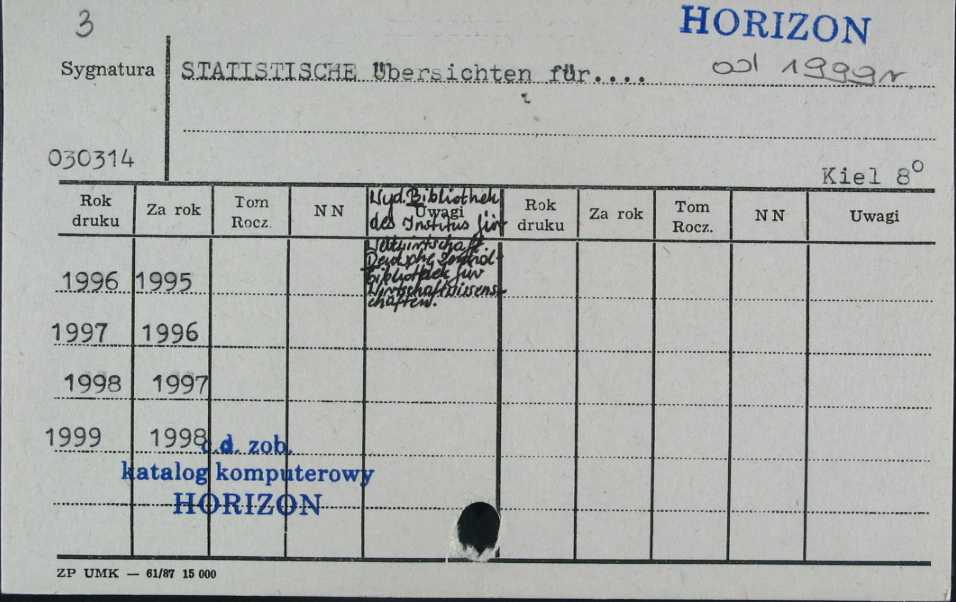 3
HORIZON
Sygnatura
STATISTISCHE Übersichten für....
od 1999r
030314
Kiel 8°
Rok druku Za rok Tom Rocz. NN Uwagi Rok druku Za rok Tom Rocz. NN Uwagi
Wyd. Bibliothek
des Institus für
Weltwirtschaft
Deutsche Zentral-
bibliothek für
Wirtschaftswissens-
chaften.
1996 1995
1997 1996
1998 1997
1999 1998
c.d. zob.
katalog komputerowy
HORIZON
ZP UMK — 61/87 15 000